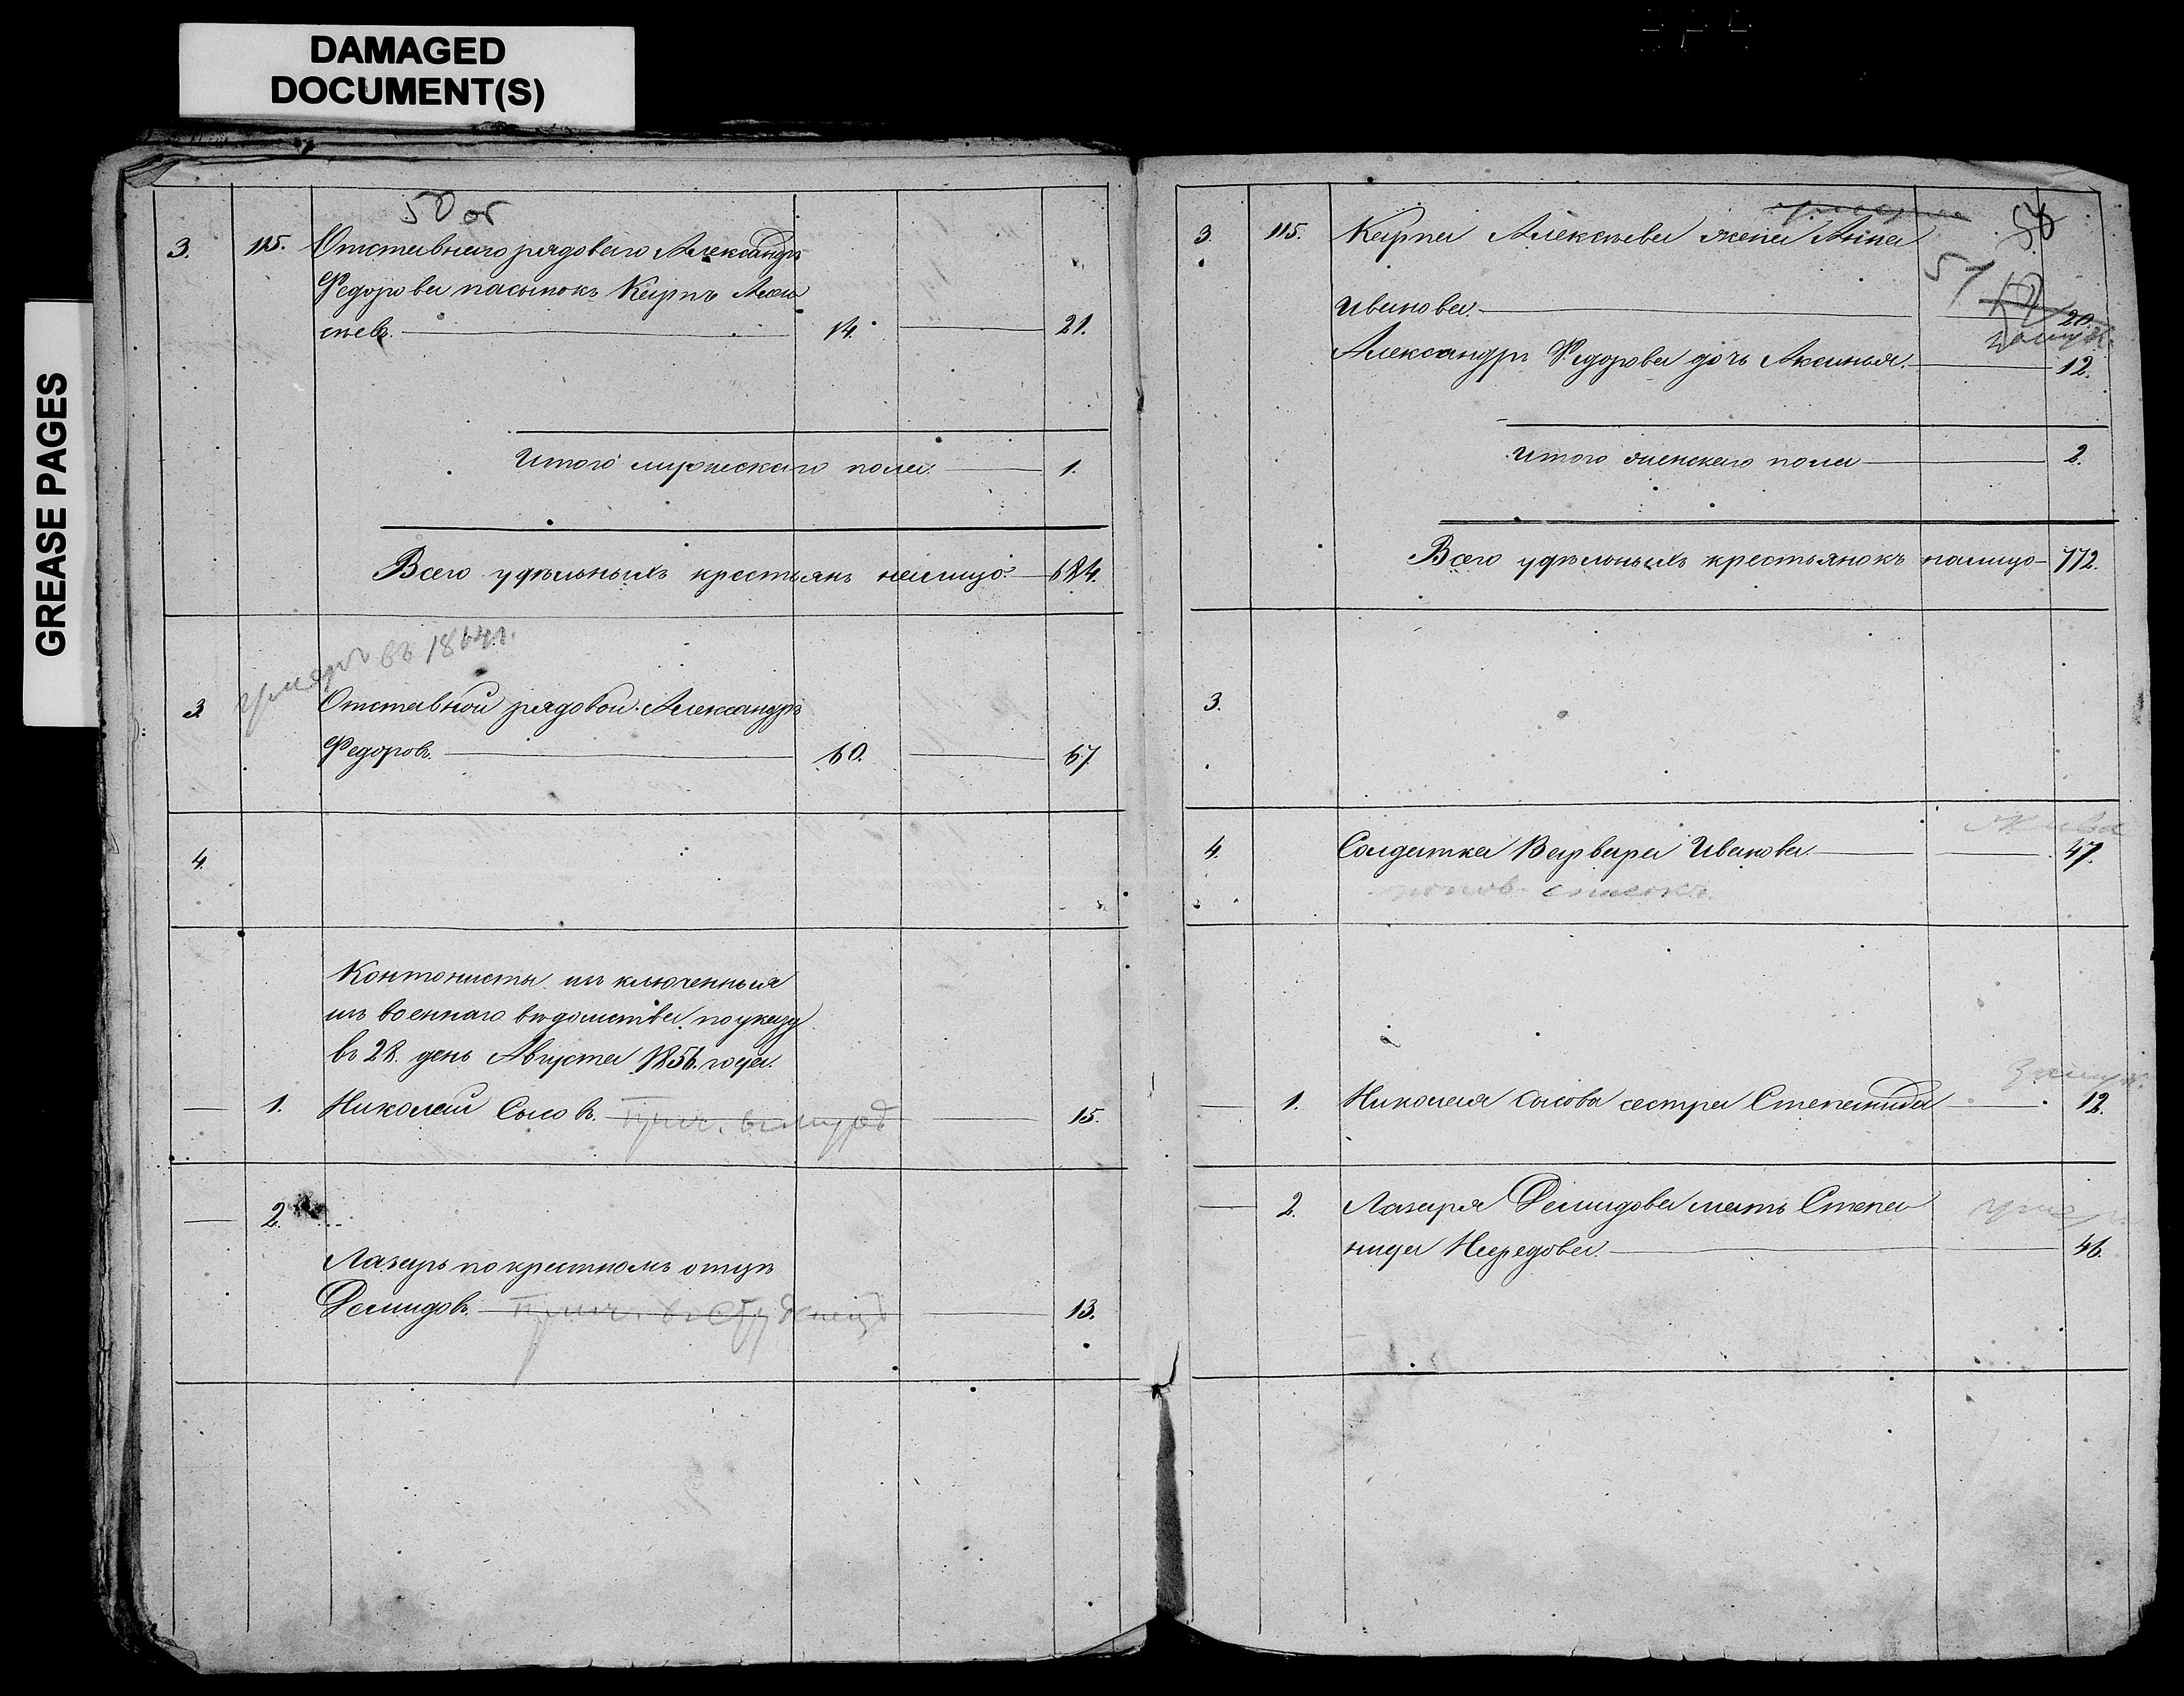 DAMAGED
DOCUMENT(S)
GREASE PAGES
50 об
3. 115. Отставнаго рядоваго Александра
Федорова пасынокъ Карпъ Алек
сѣевъ. 14. 21.
Итого мужескаго пола. 1.
Всего удѣльныхъ крестьянъ налицо 684.
умеръ въ 1864 г.
3 Отставной рядовой Александръ
Федоровъ. 60. 67
4.
Контонисты исключенныя
изъ военнаго вѣдомства по указу
въ 28. день Августа 1856. года.
1. Николай Сысовъ. 15.
2.
Лазарь по крестномъ отцѣ
Демидовъ. 13.
51
3. 115. Карпа Алексѣева жена Анна
Иванова. 20.
замуж.
Александра Федорова дочь Аксинья. 12.
Итого женскаго пола 2.
Всего удѣльныхъ крестьянокъ налицо 772.
3.
жива
4. Солдатка Варвара Иванова 47.
замуж.
1. Николая Сысова сестра Степанида 12.
2. Лазаря Демидова мать Степа
умер
нида Нефедова. 46.